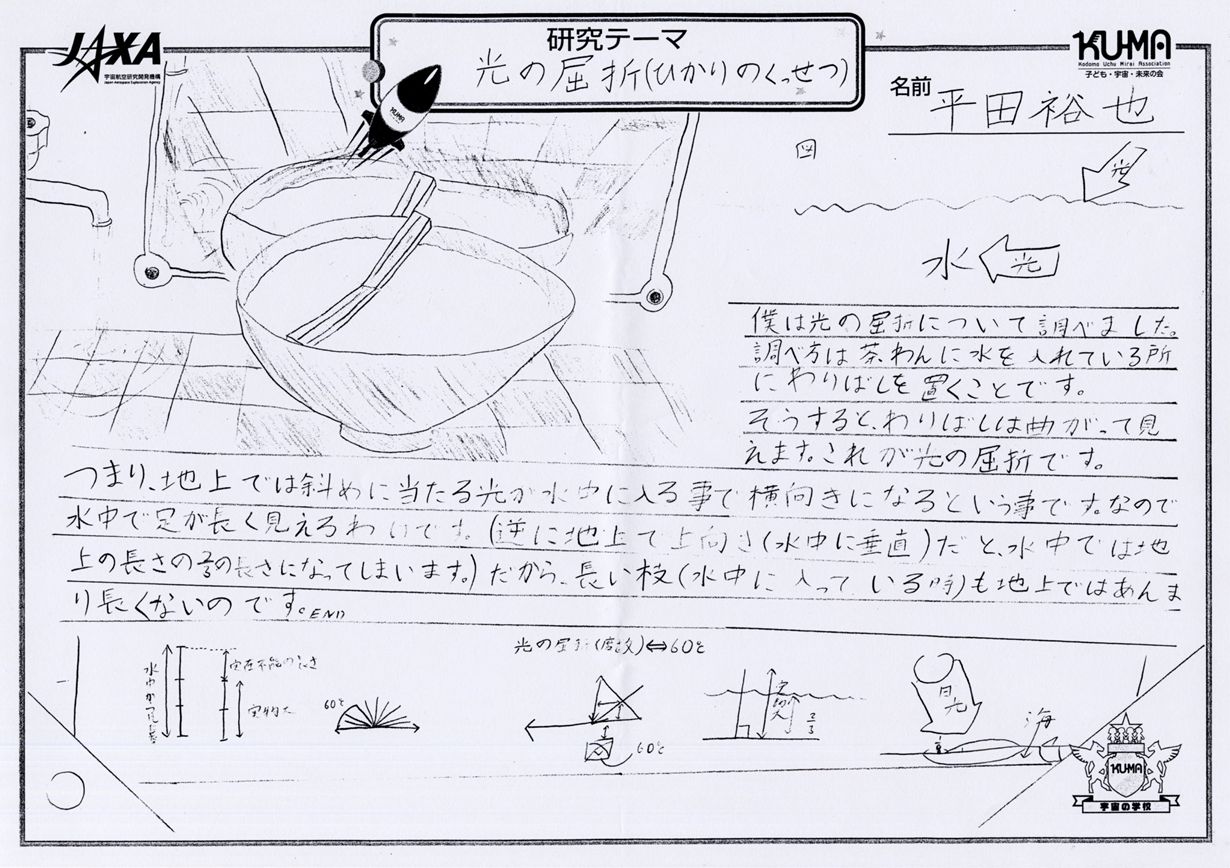 JAXA
宇宙航空研究開発機構
Japan Aerospace Exploration Agency
研究テーマ
光の屈折(ひかりのくっせつ)
KUMA
KU-MA
Kodomo Uchu Mirai Association
子ども・宇宙・未来の会
名前 平田裕也
図
光
水 光
僕は光の屈折について調べました。
調べ方は茶わんに水を入れている所
にわりばしを置くことです。
そうすると、わりばしは曲がって見
えます。これが光の屈折です。
つまり、地上では斜めに当たる光が水中に入る事で横向きになるという事です。なので
水中で足が長く見えるわけです。(逆に地上で上向き(水中に垂直)だと、水中では地
上の長さの の長さになってしまいます。)だから、長い枝(水中に入っている時)も地上ではあんま
り長くないのです。END
光の屈折(度数)⇔60℃
60℃
実物大
図 60℃
2/3
日光
海
KU-MA
宇宙の学校